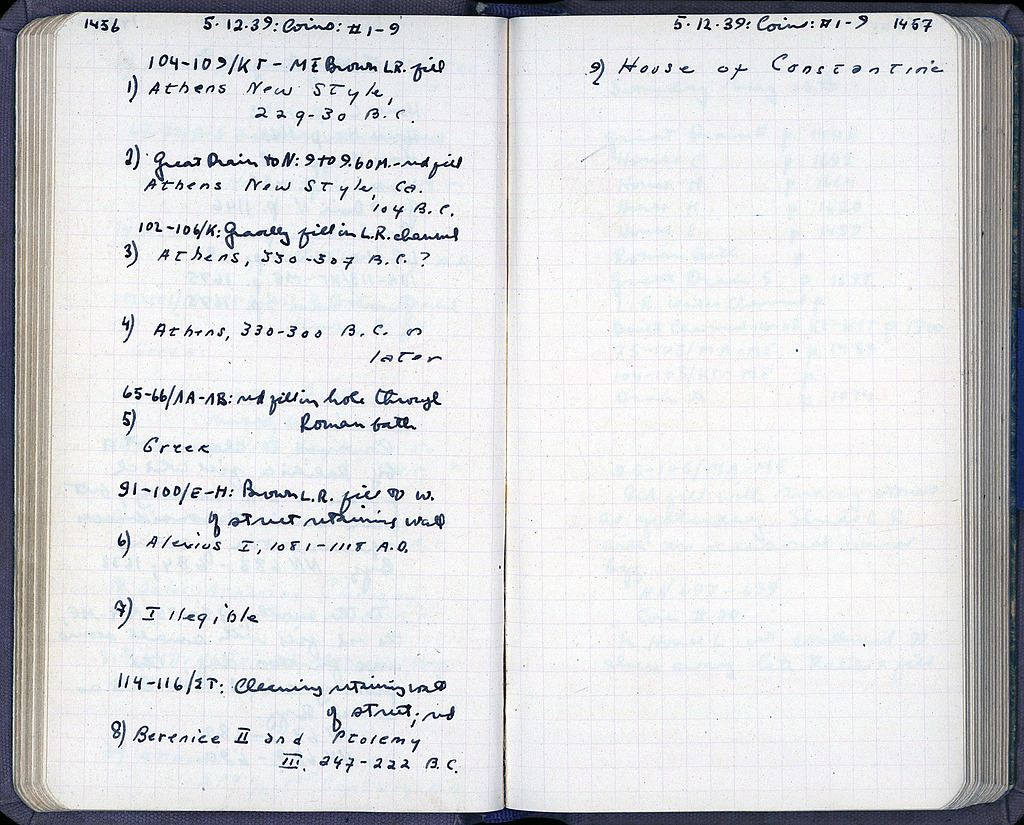 1456 5·12·39: Coins: #1-9
104-109/ΚΓ-ΜΓ Brown L.R. fill
1) Athens New Style,
229-30 B.C.
2) Great Drain to N: 9 to 9.60 M.-red fill
Athens New Style, Ca.
104 B.C.
102-106/K: Gravelly fill in L.R. channel
3) Athens, 330-307 B.C.?
4) Athens, 330-300 B.C. or
later
65-66/ΛΑ-ΛΒ: red fill in hole through
5) Roman bath
Greek
91-100/E-H: Brown L.R. fill to W.
of street retaining wall
6) Alexius I, 1081-1118 A.D.
7) Illegible
114-116/ΣΤ: Cleaning retaining wall
of street; red
8) Berenice II and Ptolemy
III. 247-222 B.C.
5·12·39: Coins: #1-9 1457
9) House of Constantine